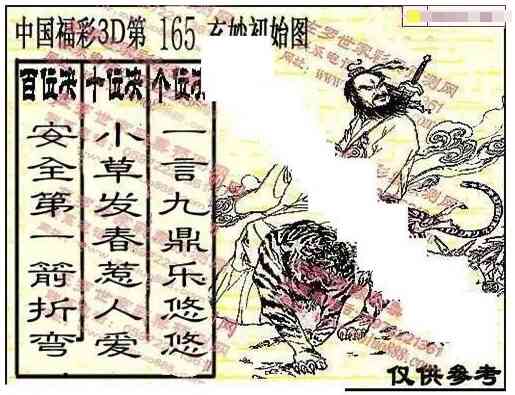 中国福彩3D第 165 玄妙初始图
百位决 十位决 个位决
安全第一箭折弯
小草发春惹人爱
一言九鼎乐悠悠
仅供参考